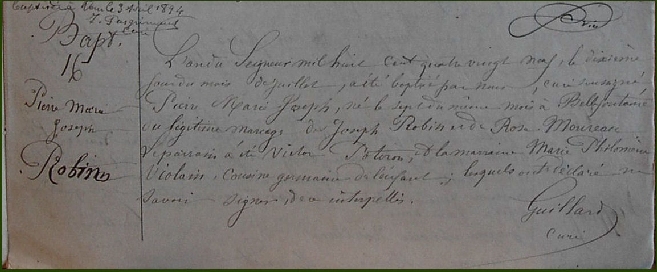 3 Avril 1894
curé
Bapt.
16
Pierre Marie
Joseph
Robin
L'an du Seigneur mil huit cent quatre vingt neuf, le dixième
jour du mois de juillet a été baptisé par nous, curé soussigné
Pierre Marie Joseph, né le sept du même mois à Bellefontaine
du légitime mariage de Joseph Robin et de Rose Moureau
Le parrain a été Victor et la marraine Marie Philomène
Violain, cousine germaine de l'enfant; lesquels ont déclaré ne
savoir signer de ce interpellés.
Guillard
Curé